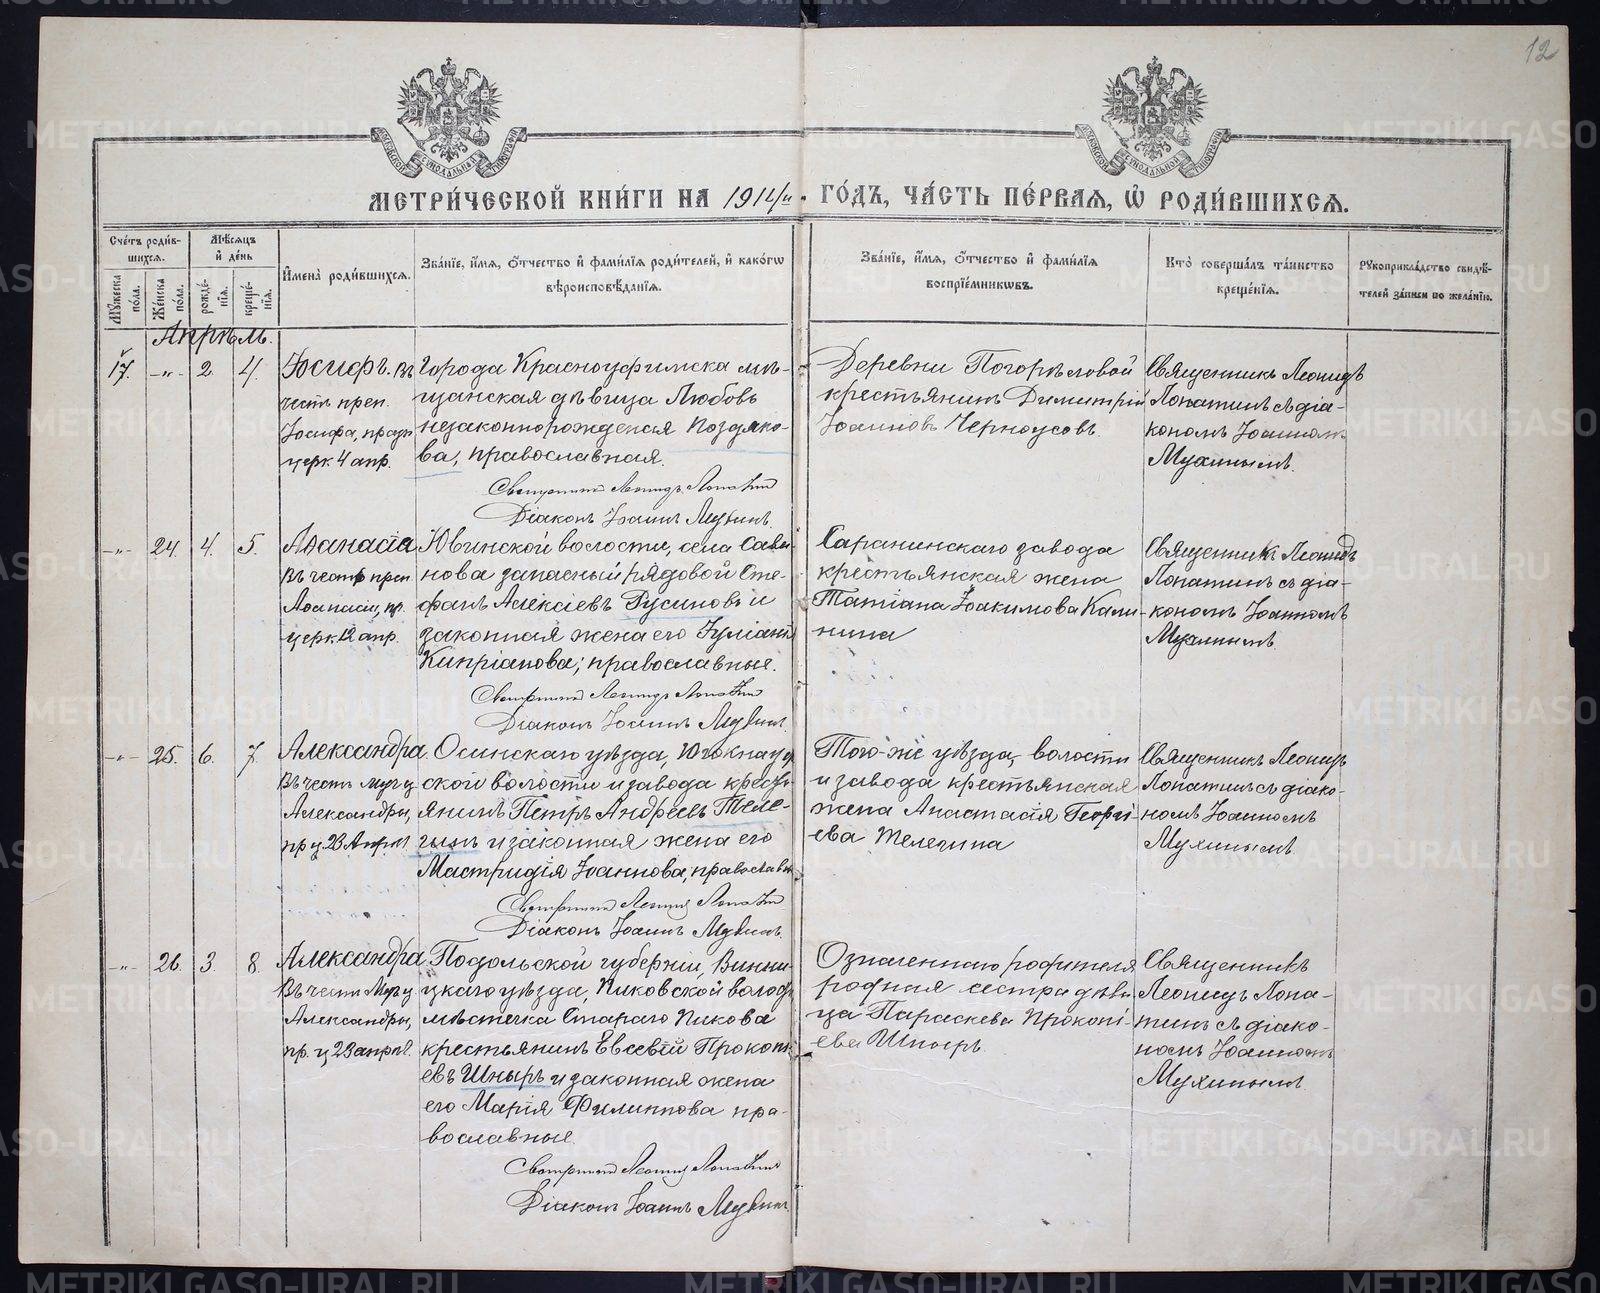 12
МЕТРИ́ЧЕСКОЙ КНИ́ГИ НА 1914/й ГО́ДЪ, ЧА́СТЬ ПЕ́РВАѦ, Ѽ РОДИ́ВШИХСѦ.
Сче́тъ роди́в-
шихсѧ.
Мꙋ́жеска по́ла.
Же́нска по́ла.
Мѣ́сѧцъ
и҆ де́нь
рожде́-
нїѧ.
креще́-
нїѧ.
И҆мена̀ роди́вшихсѧ.
Зва́нїе, и҆́мѧ, ѻ҆́тчество и҆ фамилїѧ роди́телей, и҆ како́гѡ
вѣроисповѣ́данїѧ.
Зва́нїе, и҆́мѧ, ѻ҆́тчество и҆ фами́лїѧ
воспрїе́мникѡвъ.
Кто̀ соверша́лъ та́инство
креще́нїѧ.
Рꙋкоприкла́дство свидѣ́-
телей за́писи по жела́нїю.
Апрѣль.
17. -"- 2. 4.
Іосифъ. въ
честь преп.
Іосифа, празд
церк. 4 апр.
Города Красноуфимска мѣ-
щанская дѣвица Любовь
незаконнорожденная Поздяко-
ва, православная.
Священникъ Леонидъ Лопатинъ
Діаконъ Іоаннъ Мухинъ.
Деревни Погорѣловой
крестьянинъ Димитрій
Іоанновъ Черноусовъ.
Священникъ Леонидъ
Лопатинъ съ діа-
кономъ Іоанномъ
Мухинымъ.
-"- 24. 4. 5.
Аѳанасія
Въ честь преп
Аѳанасіи, пр.
церк. 12 апр.
Ювинской волости, села Сави-
нова запасный рядовой Сте-
фанъ Алексіевъ Русиновъ и
законная жена его Іуліанія
Кипріанова; православные.
Священникъ Леонидъ Лопатинъ
Діаконъ Іоаннъ Мухинъ.
Саранинскаго завода
крестьянская жена
Татіана Іоакимова Кали-
нина
Священникъ Леонидъ
Лопатинъ съ діа-
кономъ Іоанномъ
Мухинымъ.
-"- 25. 6. 7.
Александра
Въ честь Муч ц
Александры,
пр ц 23 Апрѣл
Осинскаго уѣзда, Югокнауф
ской волости и завода кресть
янинъ Петръ Андреевъ Теле-
гинъ и законная жена его
Мастридія Іоаннова, православн
Священникъ Леонидъ Лопатинъ
Діаконъ Іоаннъ Мухинъ.
Того-же уѣзда, волости
и завода крестьянская
жена Анастасія Георгі-
ева Телегина
Священникъ Леонидъ
Лопатинъ съ діако-
номъ Іоанномъ
Мухинымъ.
-"- 26. 3. 8.
Александра
Въ честь Муч ц
Александры,
пр. ц 23 апрѣл.
Подольской губерніи, Винни-
цкаго уѣзда, Пиковской волос
мѣстечка Стараго Пикова
крестьянинъ Евсевій Прокопі
евъ Шныръ и законная жена
его Марія Филиппова пра-
вославные.
Священникъ Леонидъ Лопатинъ
Діаконъ Іоаннъ Мухинъ.
Означеннаго родителя
родная сестра дѣви
ца Параскева Прокопі-
ева Шныръ.
Священникъ
Леонидъ Лопа-
тинъ съ діако-
номъ Іоанномъ
Мухинымъ.
METRIKI.GASO-URAL.RU